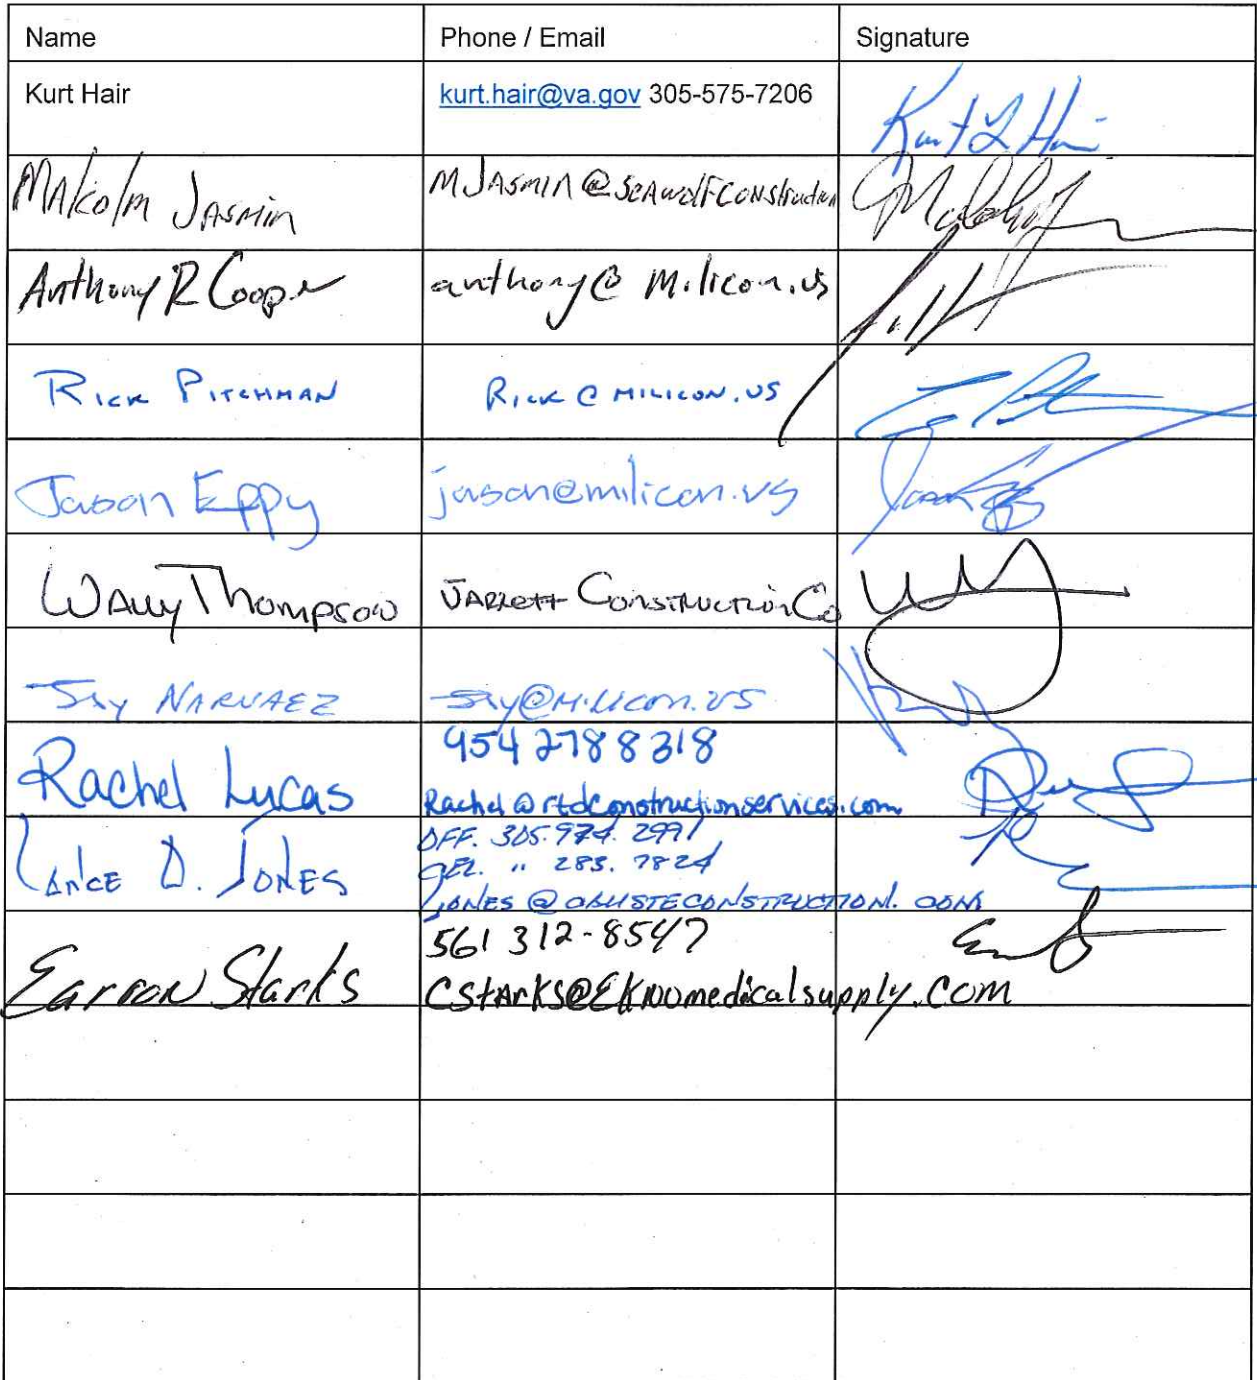 Name Phone / Email Signature
Kurt Hair kurt.hair@va.gov 305-575-7206 Kurt L Hair
MAlkolm JAsmin MJAsmin@SeAwolfConstruction
Anthony R Cooper anthony@milicon.us
Rick Pitchman Rick@milicon.us
Jason Eppy jason@milicon.us
Wally Thompson Jarrett Construction Co
Jay Narvaez Jay@milicon.us
Rachel Lucas 954 278 8318
Rachel@rtdconstructionservices.com
Lance D. Jones OFF. 305.974.2991
CEL. " 283.7824
561 312-8547
Earron Starks CStarks@EKNOmedicalsupply.com